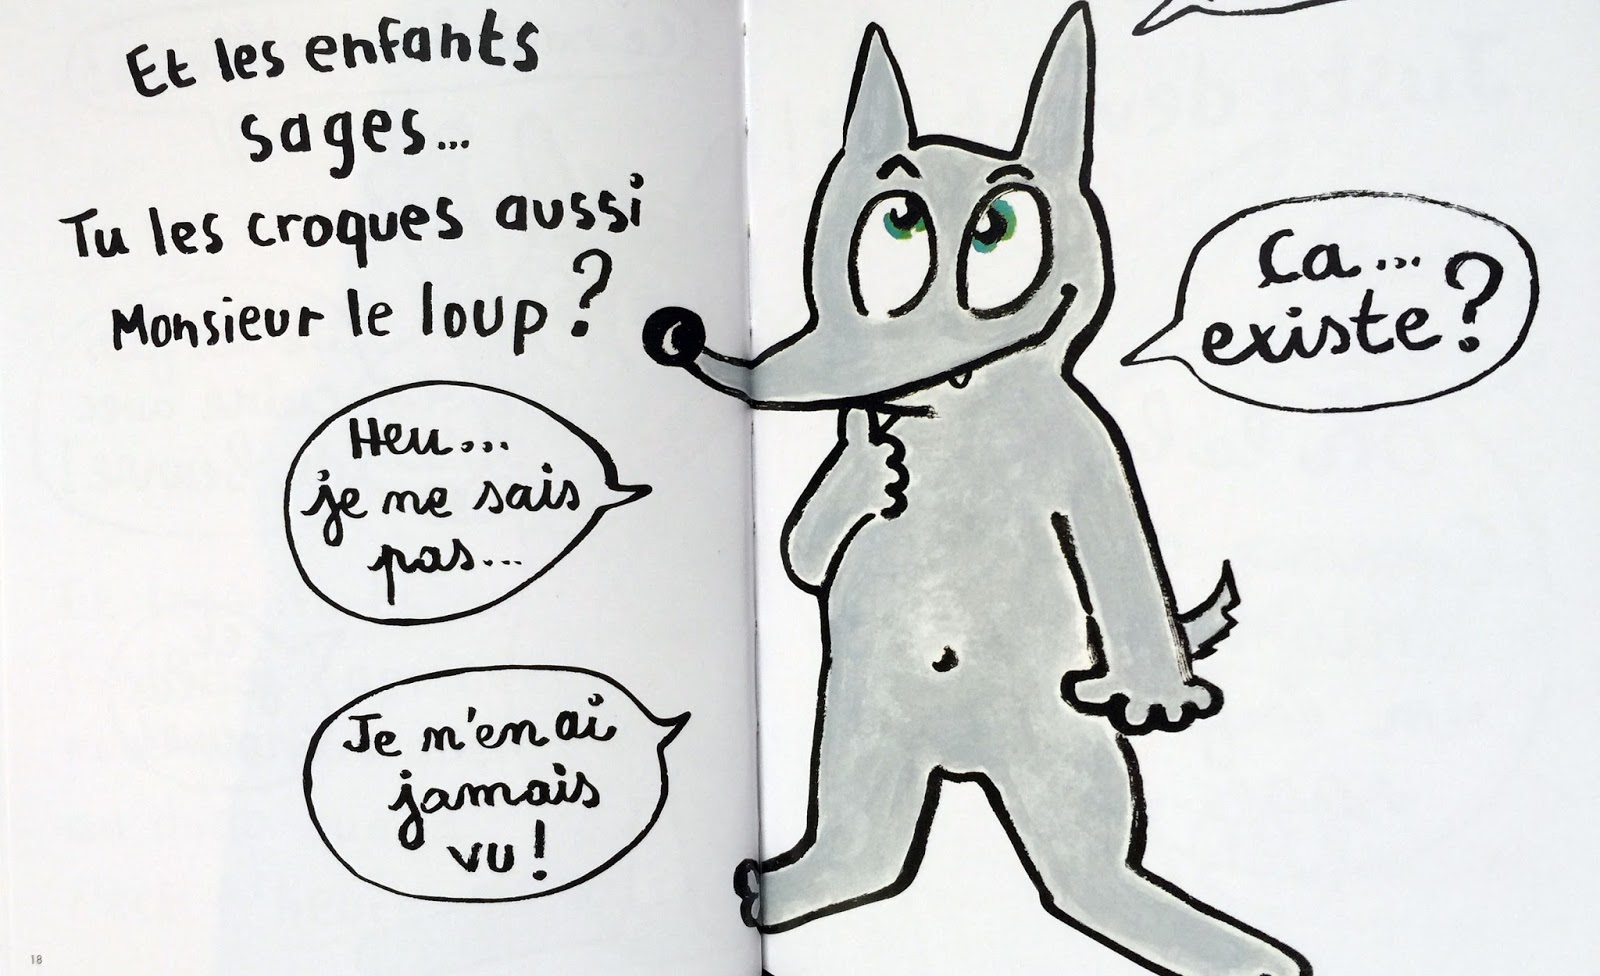 Et les enfants
sages...
Tu les croques aussi
Monsieur le loup ?
Heu...
je ne sais
pas...
Je n'en ai
jamais
vu !
Ça...
existe ?
18